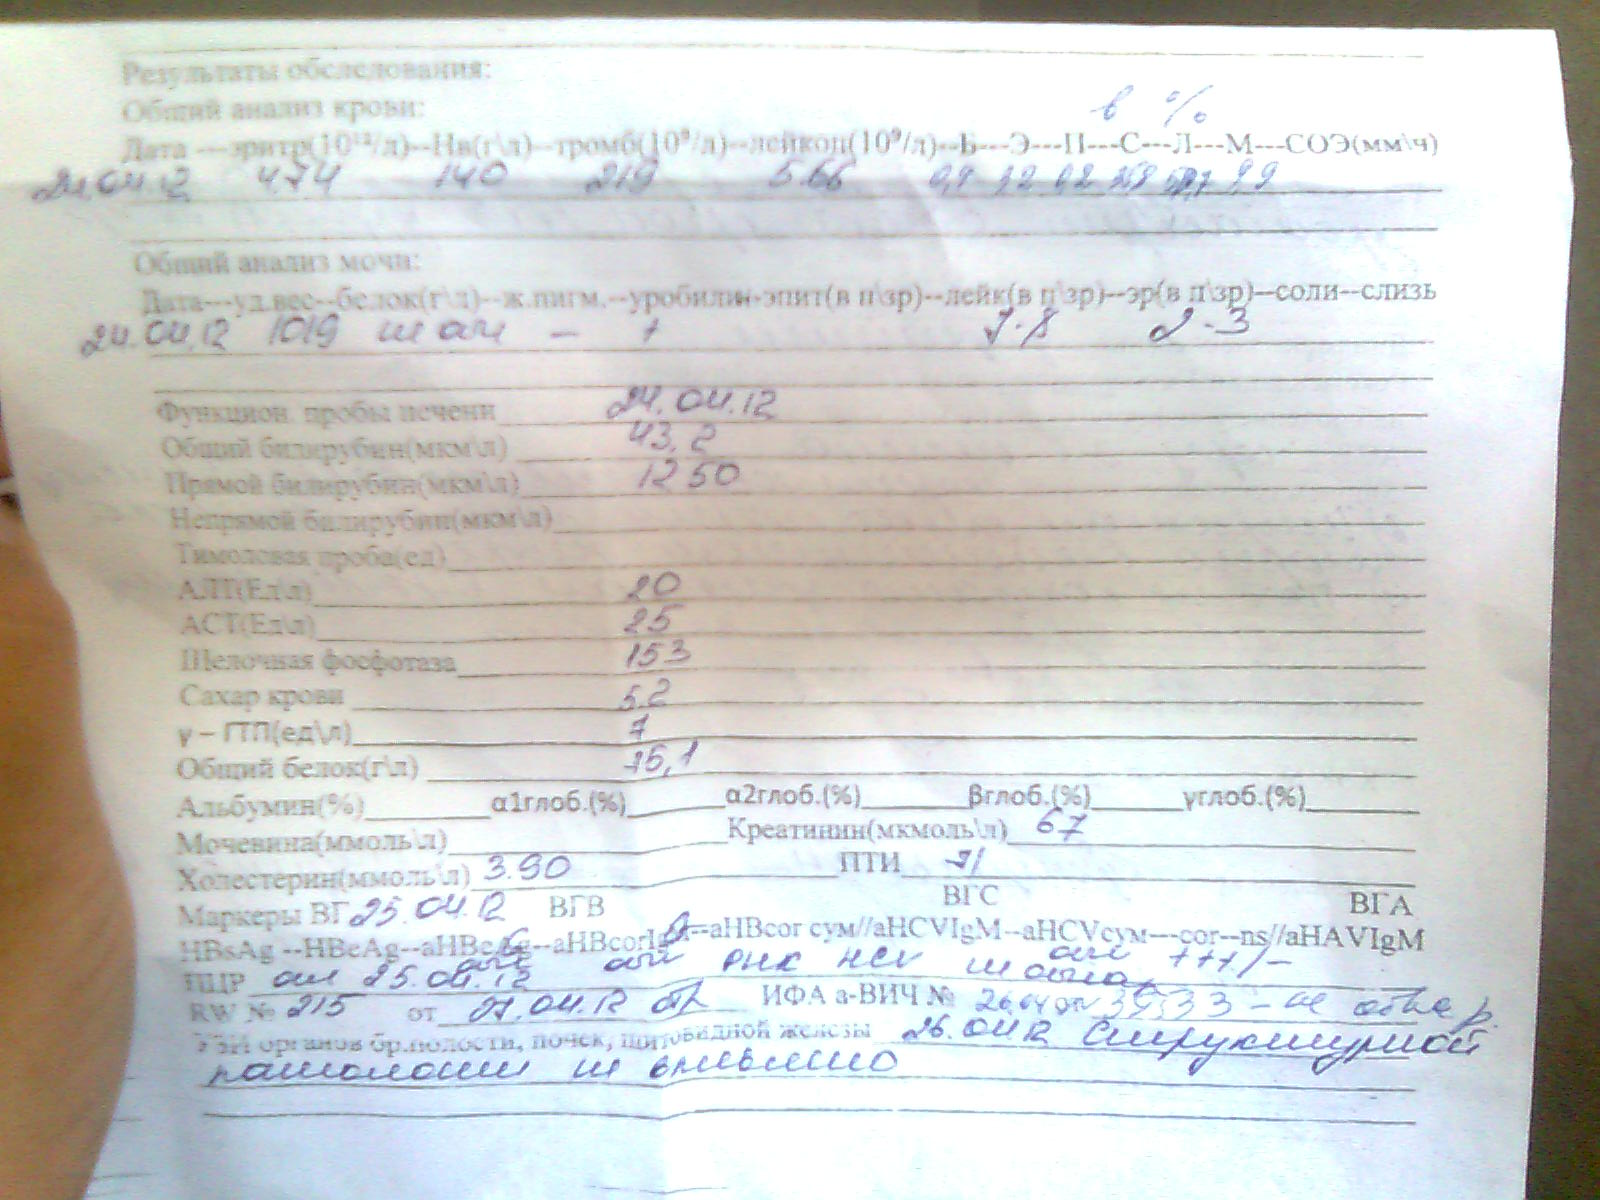 Результаты обследования:
Общий анализ крови:
в %
Дата ---эритр(10¹²/л)--Нв(г\л)--тромб(10⁹/л)--лейкоц(10⁹/л)--Б---Э---П---С---Л---М---СОЭ(мм\ч)
24.04.12 4.74 140 219 5.66
Общий анализ мочи:
Дата---уд.вес--белок(г\л)--ж.пигм.--уробилин-эпит(в п\зр)--лейк(в п\зр)--эр(в п\зр)--соли--слизь
24.04.12 1019 – + 7-8 2-3
Функцион. пробы печени 24.04.12
Общий билирубин(мкм\л) 43,2
Прямой билирубин(мкм\л) 12 50
Непрямой билирубин(мкм\л)
Тимоловая проба(ед)
АЛТ(Ед\л) 20
АСТ(Ед\л) 25
Щелочная фосфотаза 153
Сахар крови 5.2
γ – ГТП(ед\л) 7
Общий белок(г\л)
Альбумин(%) α1глоб.(%) α2глоб.(%) βглоб.(%) γглоб.(%)
Мочевина(ммоль\л) Креатинин(мкмоль\л) 67
Холестерин(ммоль\л) 3.90 ПТИ
Маркеры ВГ 25.04.12 ВГВ ВГС ВГА
HBsAg --HBeAg--aHBcorIgM--aHBcor сум//aHCVIgM--aHCVсум---cor--ns//aHAVIgM
+++/–
ПЦР от 25.04.12 РНК HCV
RW № 215 от 27.04.12 ИФА а-ВИЧ № 26.04
УЗИ органов бр.полости, почек, щитовидной железы 26.04.12 Структурной
патологии не выявлено